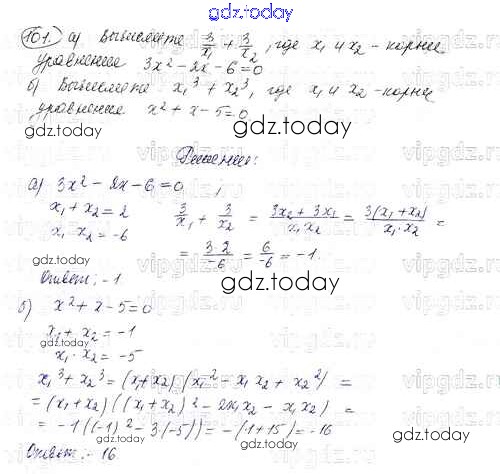 gdz.today
101. а) Вычислите 3/x₁ + 3/x₂, где x₁ и x₂ - корни
уравнения 3x² - 2x - 6 = 0
б) Вычислите x₁³ + x₂³, где x₁ и x₂ - корни
уравнения x² + x - 5 = 0
gdz.today
Решение:
а) 3x² - 2x - 6 = 0,
x₁ + x₂ = 2
x₁ x₂ = -6
3/x₁ + 3/x₂ = (3x₂ + 3x₁)/(x₁x₂) = 3(x₁ + x₂)/(x₁·x₂) =
= 3·2/-6 = 6/-6 = -1.
gdz.today
Ответ: -1
gdz.today
б) x² + x - 5 = 0
x₁ + x₂ = -1
gdz.today
x₁·x₂ = -5
x₁³ + x₂³ = (x₁+x₂)(x₁² - x₁x₂ + x₂²) =
= (x₁+x₂)((x₁+x₂)² - 2x₁x₂ - x₁x₂) =
= -1((-1)² - 3·(-5)) = -(1+15) = -16
Ответ: -16
gdz.today
gdz.today